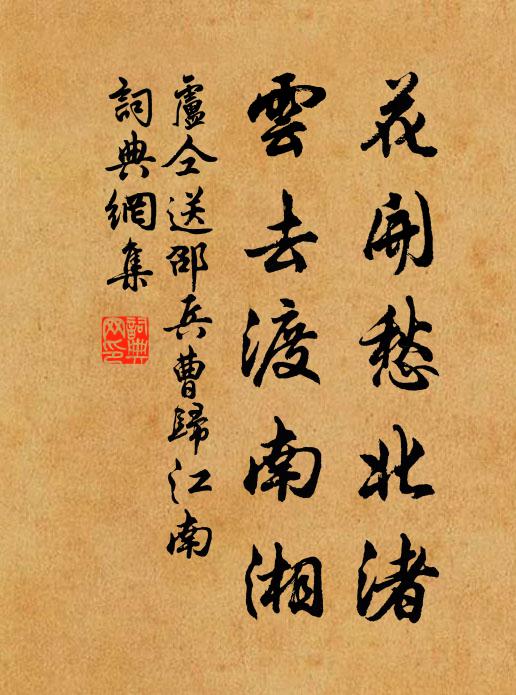 花開愁北渚
雲去渡南湘
盧仝送邵兵曹歸江南
詞典網集
詞典網印